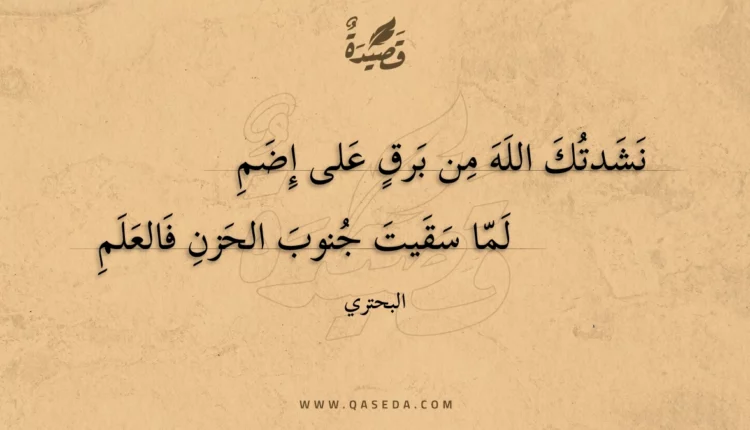 قَصِيْدَةٌ
نَشَدتُكَ اللَهَ مِن بَرقٍ عَلى إِضَمِ
لَمّا سَقَيتَ جُنوبَ الحَزنِ فَالعَلَمِ
البحتري
WWW.QASEDA.COM